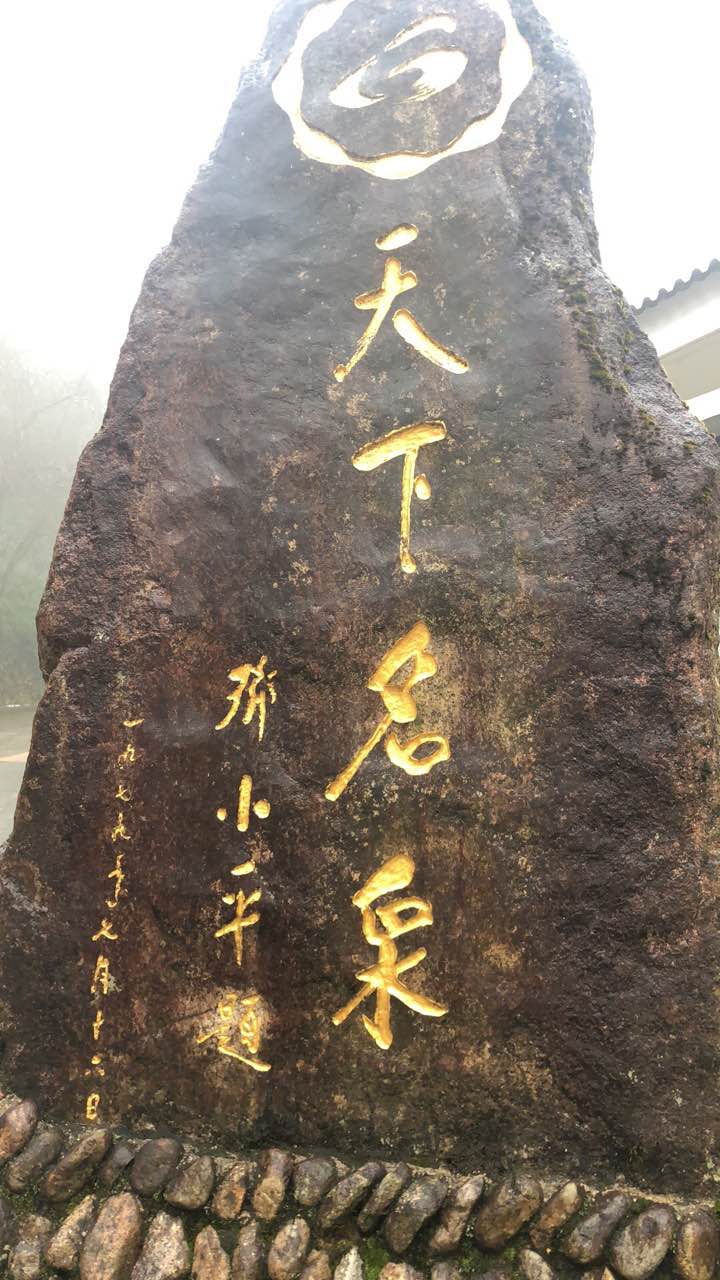 天下名泉
鄧小平題
一九七九年七月十六日